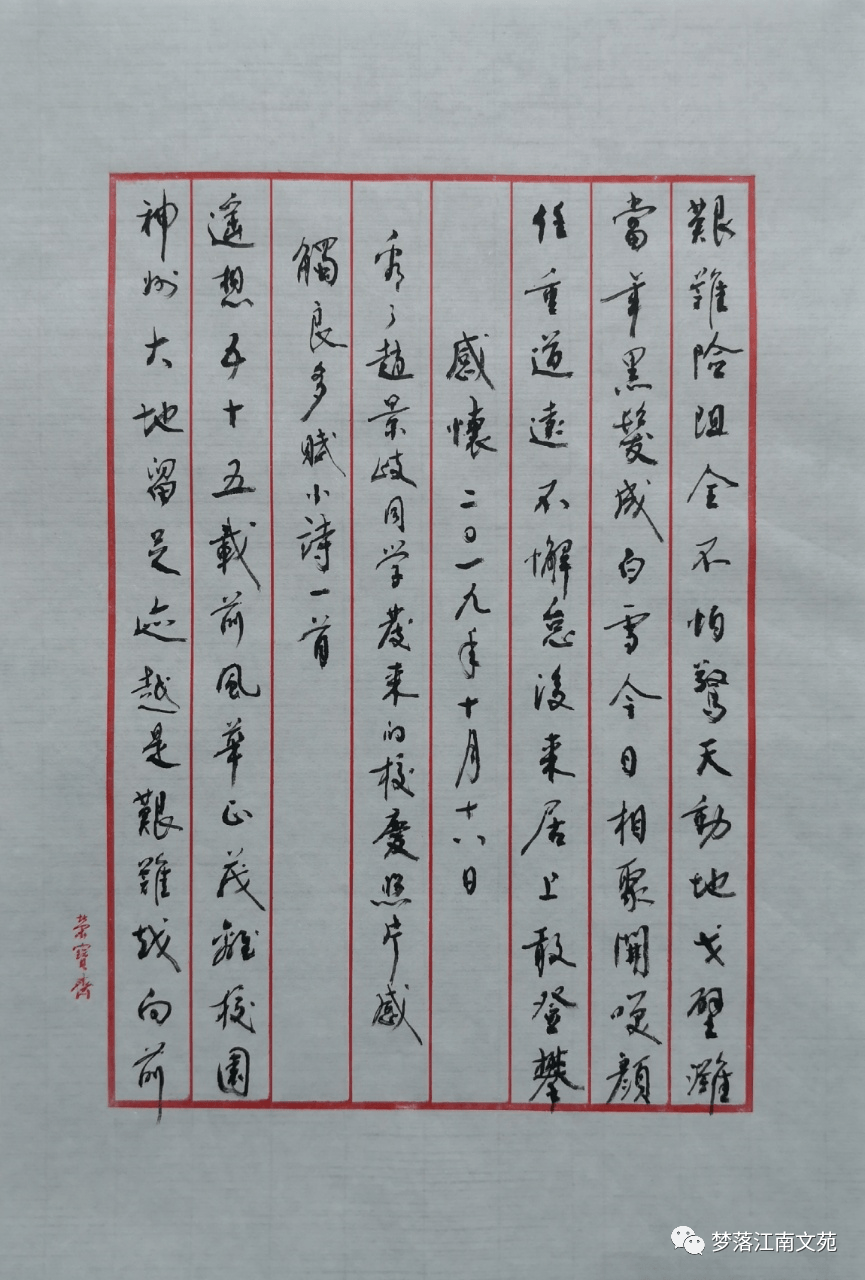 艱難險阻全不怕驚天動地戈壁灘
當年黑髮成白雪今日相聚開笑顏
任重道遠不懈怠後來居上敢登攀
感懷 二〇一九年十月十八日
看了趙景歧同学發来的校慶照片感
觸良多賦小詩一首
遥想五十五載前風華正茂離校園
神州大地留足迹越是艱難越向前
榮寶齋
梦落江南文苑